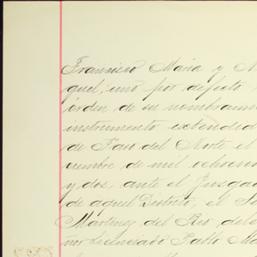 Francisco Maria y M
quel, uno por defecto
órden de su nombramien
instrumento extendido
de Paso del Norte el
viembre de mil ochocien
y dos, ante el Juzgad
de aquel Distrito, el S
Martinez del Rio, dele
nor Licenciado Pablo Ma